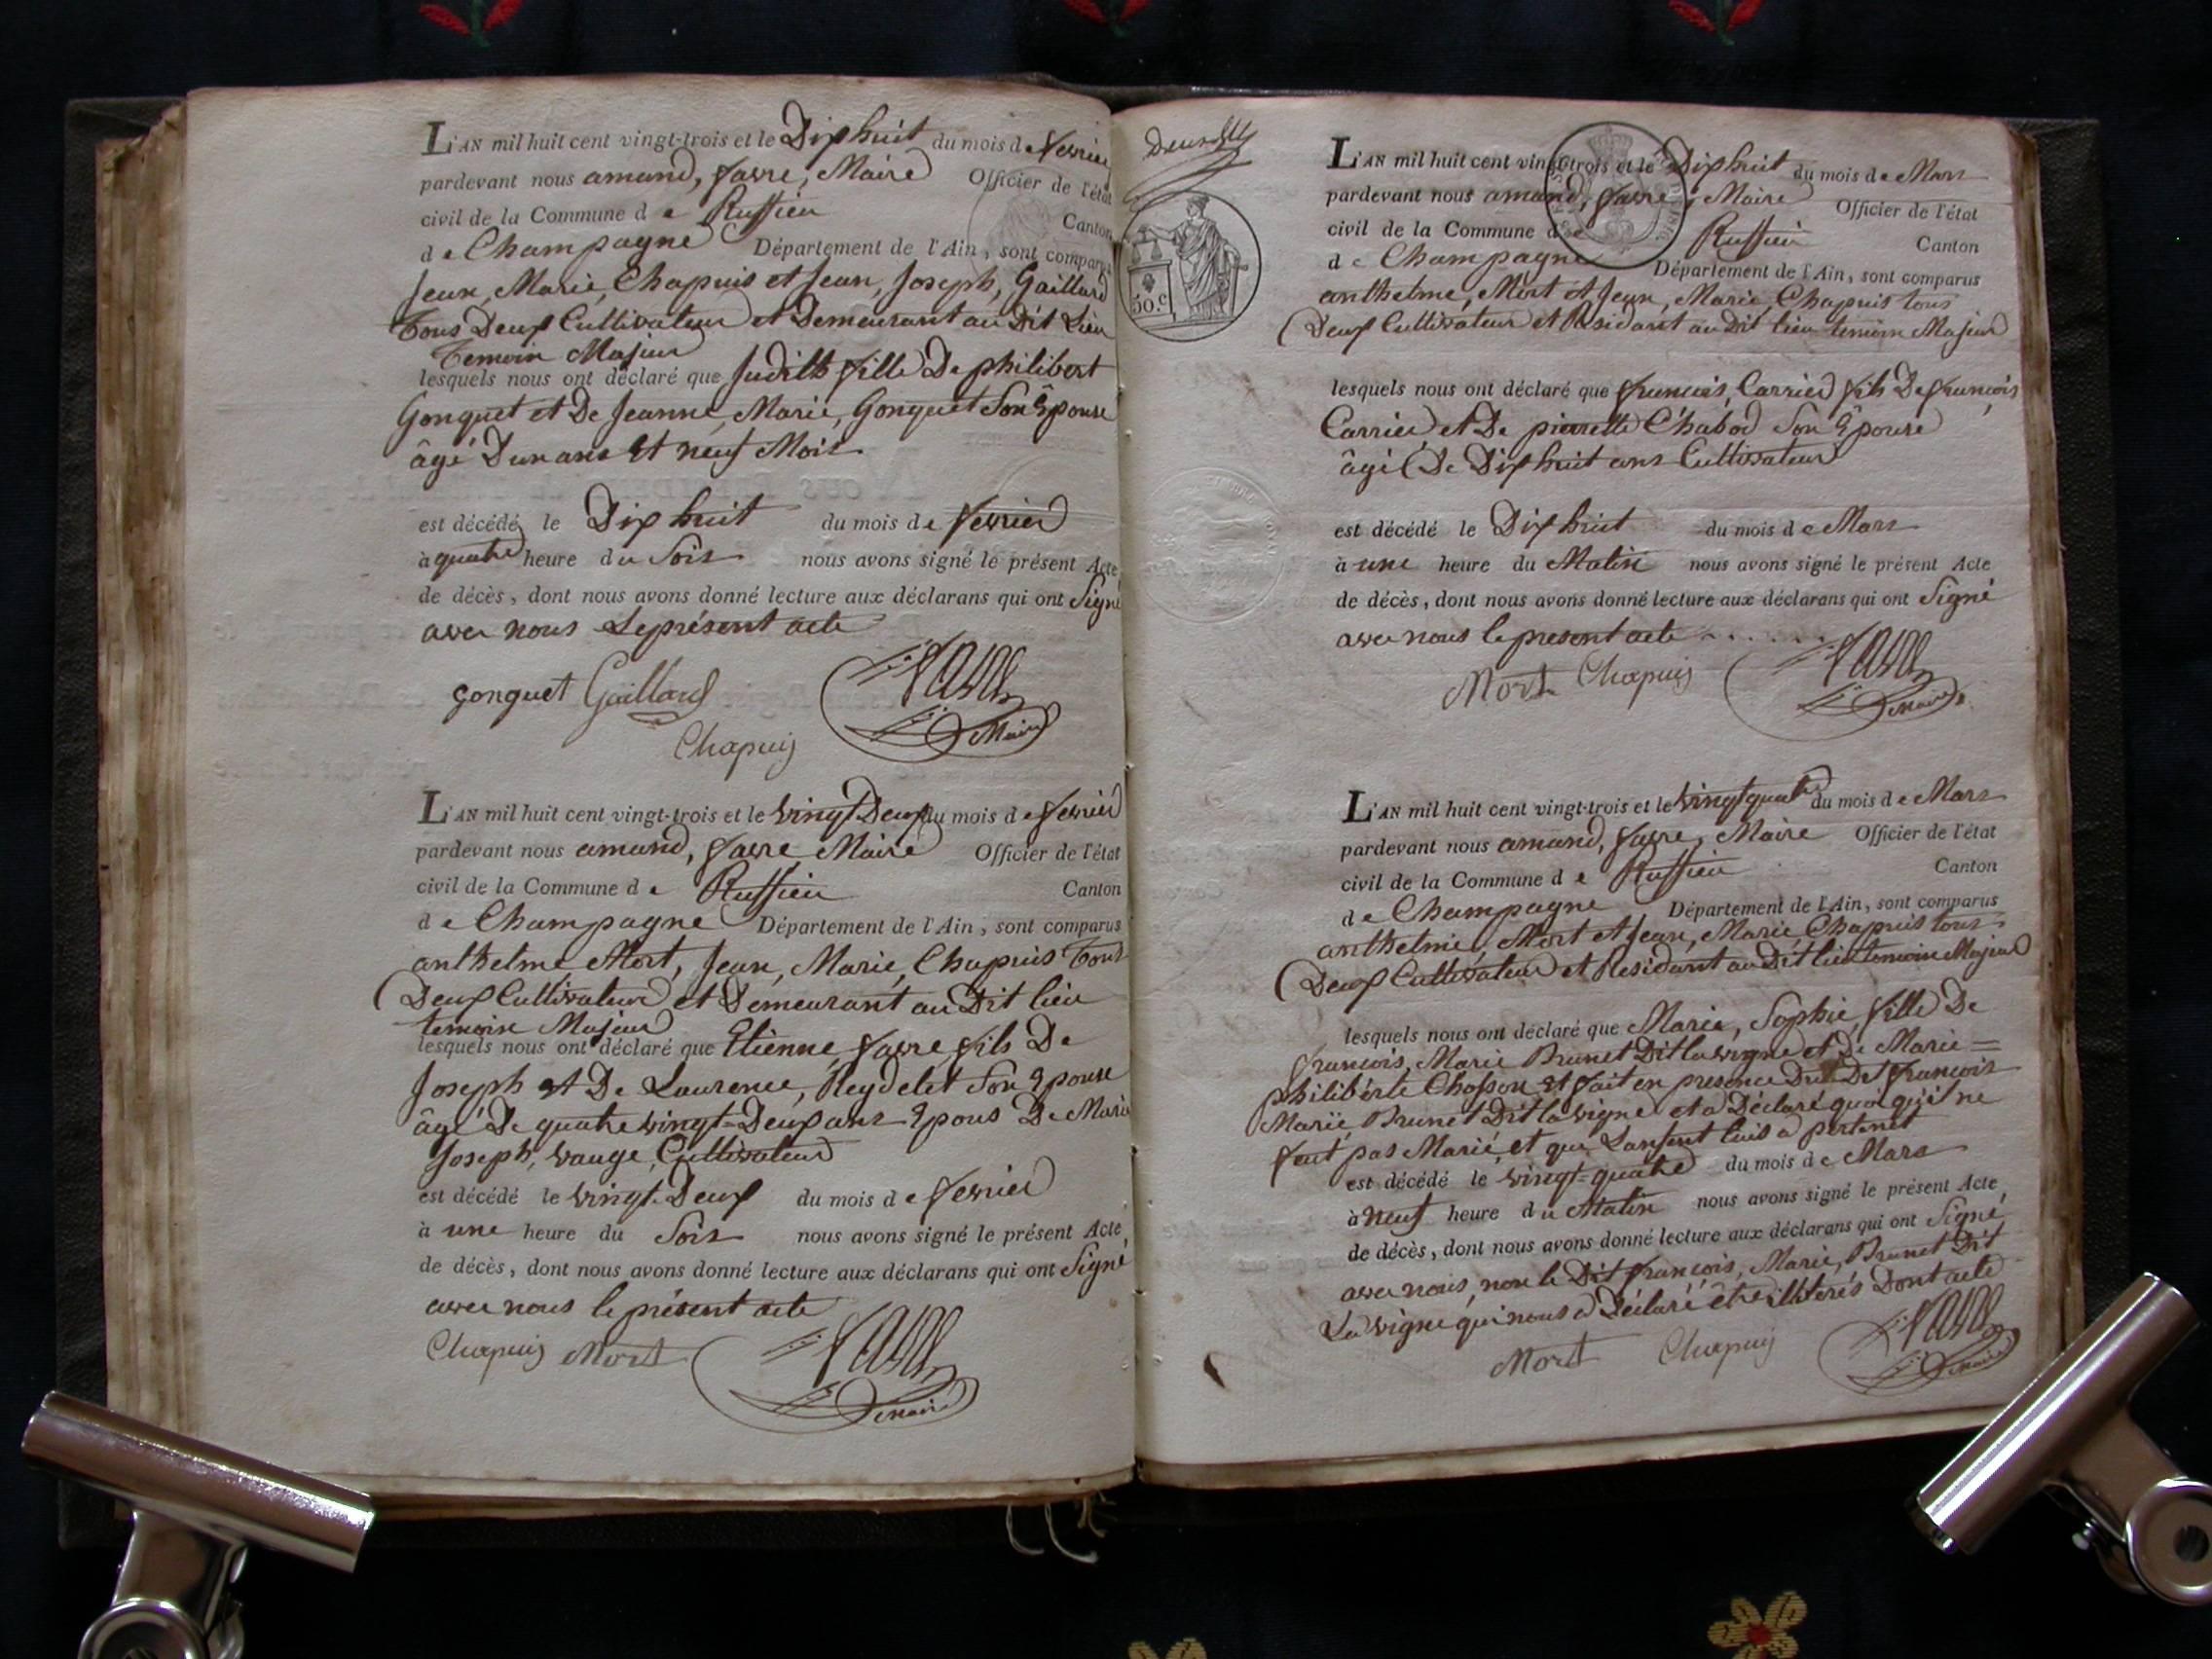 L'AN mil huit cent vingt-trois et le Dix huit du mois de fevrier
pardevant nous amand, favre, Maire Officier de l'état
civil de la Commune de Ruffieu
Canton
de Champagne Département de l'Ain, sont comparus
Jean, Marie, Chapuis et Jean, Joseph, Gaillard
Tous Deux Cultivateur et Demeurant au Dit Lieu
Temoin Majeur
lesquels nous ont déclaré que Judith fille De philibert
Gonguet et De Jeanne, Marie, Gonguet Son Epouse
âgé D'un ans et neuf Mois
est décédé le Dix huit du mois de fevrier
à quatre heure du Soir nous avons signé le présent Acte
de décès, dont nous avons donné lecture aux déclarans qui ont Signé
avec nous Le présent acte
gonguet Gaillard
Chapuis
Maire
L'AN mil huit cent vingt-trois et le vingt Deux du mois de fevrier
pardevant nous amand, favre Maire Officier de l'état
civil de la Commune de Ruffieu Canton
de Champagne Département de l'Ain, sont comparus
anthelme Mort, Jean, Marie, Chapuis Tous
Deux Cultivateur et Demeurant au Dit lieu
temoin Majeur
lesquels nous ont déclaré que Etienne favre fils De
Joseph et De Laurence, Reydelet Son Epouse
âgé De quatre vingt=Deux ans Epous De Marie
Joseph, vauge, Cultivateur
est décédé le vingt Deux du mois de fevrier
à une heure du Soir nous avons signé le présent Acte
de décès, dont nous avons donné lecture aux déclarans qui ont Signé
avec nous le présent acte
Chapuis Mort
Maire
50.c
L'AN mil huit cent vingt-trois et le Dix huit du mois de Mars
pardevant nous amand, favre, Maire Officier de l'état
civil de la Commune de Ruffieu Canton
de Champagne Département de l'Ain, sont comparus
anthelme, Mort et Jean, Marie, Chapuis tous
Deux Cultivateur et Residant au Dit lieu temoin Majeur
lesquels nous ont déclaré que francois, Carrier fils De francois
Carrier et De pierrette Chabod Son Epouse
âgé De Dix huit ans Cultivateur
est décédé le Dix huit du mois de Mars
à une heure du Matin nous avons signé le présent Acte
de décès, dont nous avons donné lecture aux déclarans qui ont Signé
avec nous le present acte . . . . . .
Mort Chapuis
Maire
L'AN mil huit cent vingt-trois et le vingt quatre du mois de Mars
pardevant nous amand, favre, Maire Officier de l'état
civil de la Commune de Ruffieu Canton
de Champagne Département de l'Ain, sont comparus
anthelme, Mort et Jean, Marie Chapuis tous
Deux Cultivateur et Residant au Dit lieu temoin Majeur
lesquels nous ont déclaré que Marie, Sophie, fille De
francois, Marie Brunet Dit la vigne et De Marie=
philiberte Chosson et fait en presence Du Dit francois
Marie Brunet Dit la vigne et a Déclaré quoi qu'il ne
feut pas Marié, et que Lanfent luis a partenet
est décédé le vingt=quatre du mois de Mars
à neuf heure du Matin nous avons signé le présent Acte
de décès, dont nous avons donné lecture aux déclarans qui ont Signé
avec nous, non le Dit francois, Marie, Brunet Dit
La vigne qui nous a Déclaré être illiterés Dont acte
Mort Chapuis
Maire